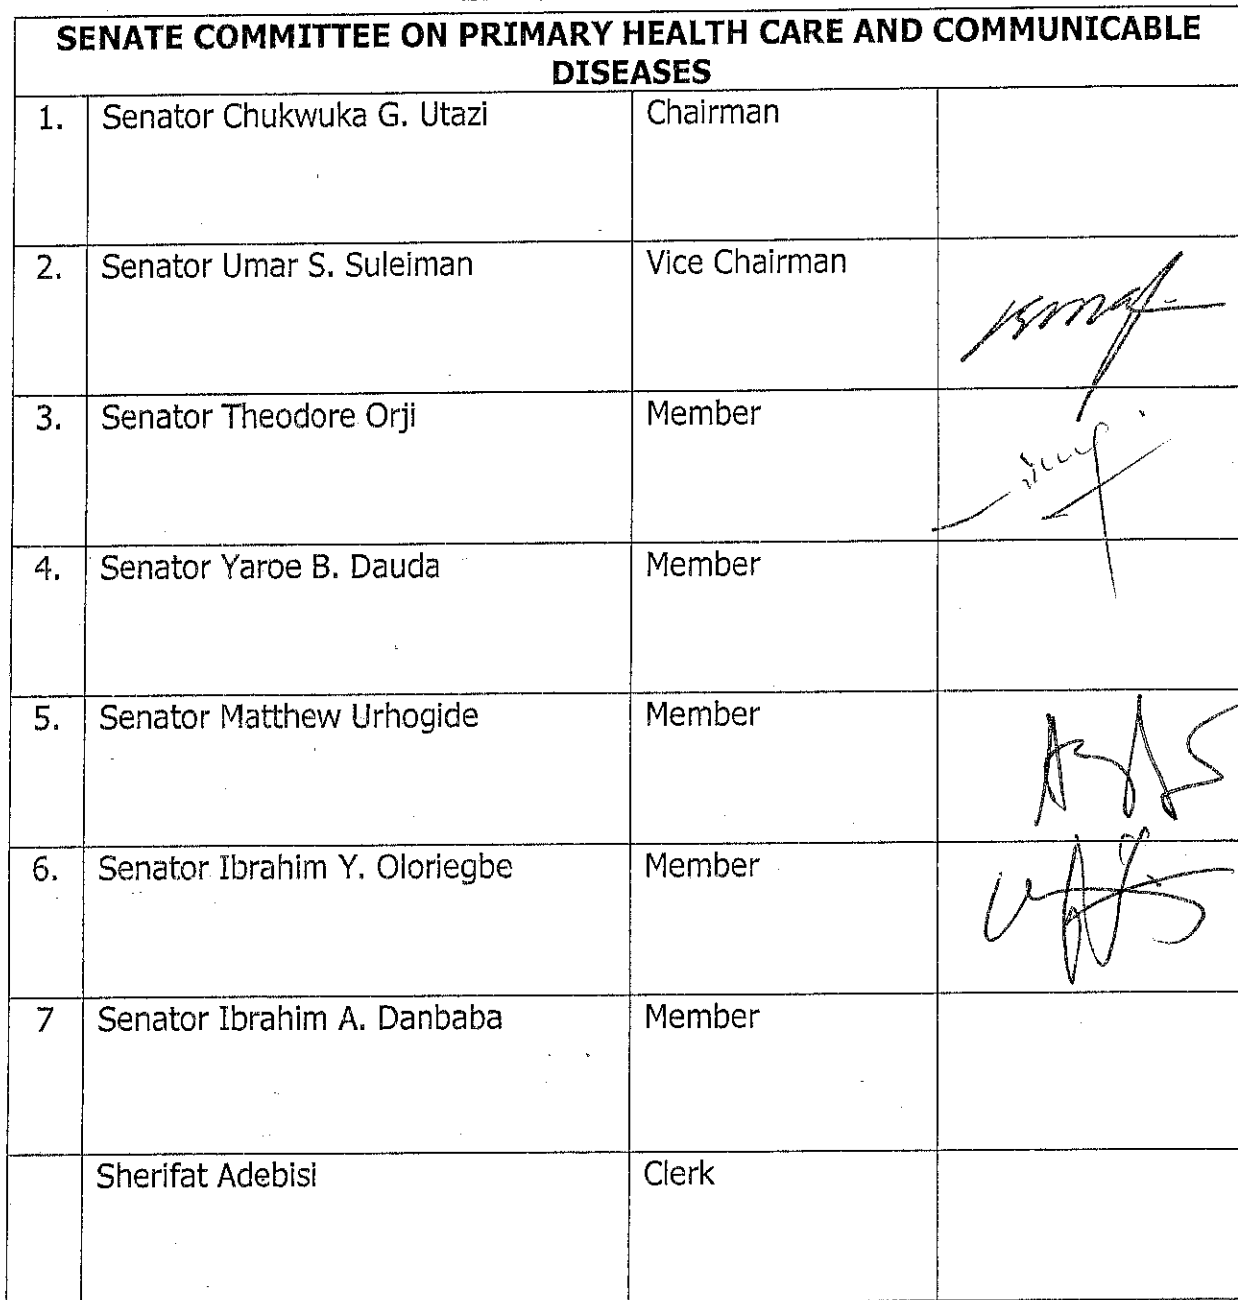 SENATE COMMITTEE ON PRIMARY HEALTH CARE AND COMMUNICABLE
DISEASES
1. Senator Chukwuka G. Utazi Chairman
2. Senator Umar S. Suleiman Vice Chairman
3. Senator Theodore Orji Member
4. Senator Yaroe B. Dauda Member
5. Senator Matthew Urhogide Member
6. Senator Ibrahim Y. Oloriegbe Member
7 Senator Ibrahim A. Danbaba Member
Sherifat Adebisi Clerk